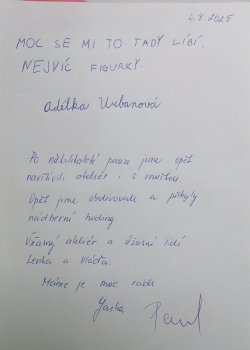 4.9.2025
MOC SE MI TO TADY LÍBÍ.
NEJVÍC FIGURKY.
Adélka Urbanová
Po několikaleté pauze jsme opět
navštívili ateliér i s vnučkou.
Opět jsme obdivovali a přibyly
nádherné hodiny
Úžasný ateliér a úžasní lidi
Lenka a Vláďa.
Máme je moc rádi